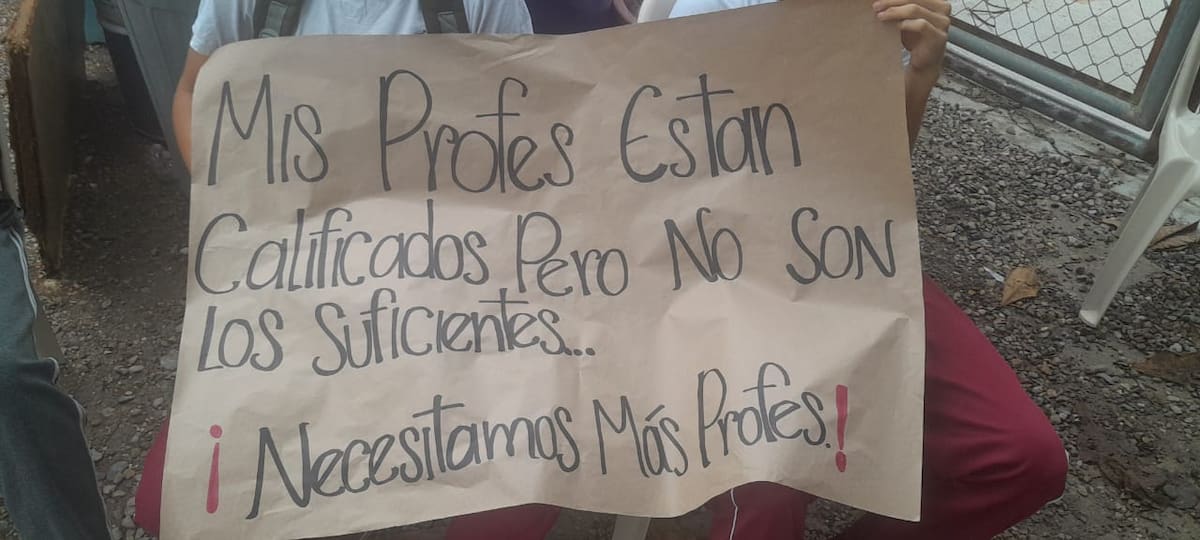 Mis Profes Estan
Calificados Pero No SoN
Los Suficientes...
¡Necesitamos Más Profes.!